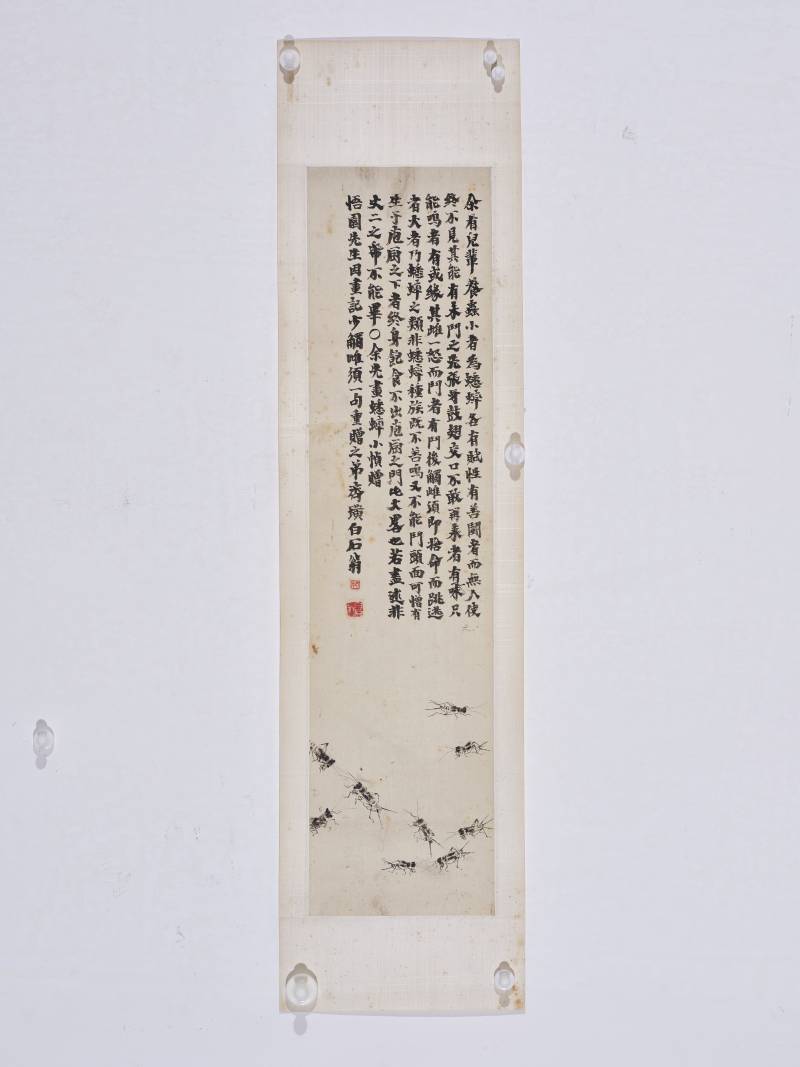 余有兒輩養蟲小者為蟋蟀各有賦性有善鬭者而無人使
終不見其能有未鬥之先張牙鼓翅交口不敢再來者有味只
能鳴者有或緣其雌一怒而鬥者有鬥後觸雌須即捨命而跳逃
者大者乃蟋蟀之類非蟋蟀種族既不善鳴又不能鬥頭面可憎有
生于庖厨之下者終身飽食不出庖厨之門此大略也若盡述非
丈二之帋不能畢〇余先畫蟋蟀小幀贈
悟園先生因重記少觸雌須一句重贈之弟齊璜白石翁